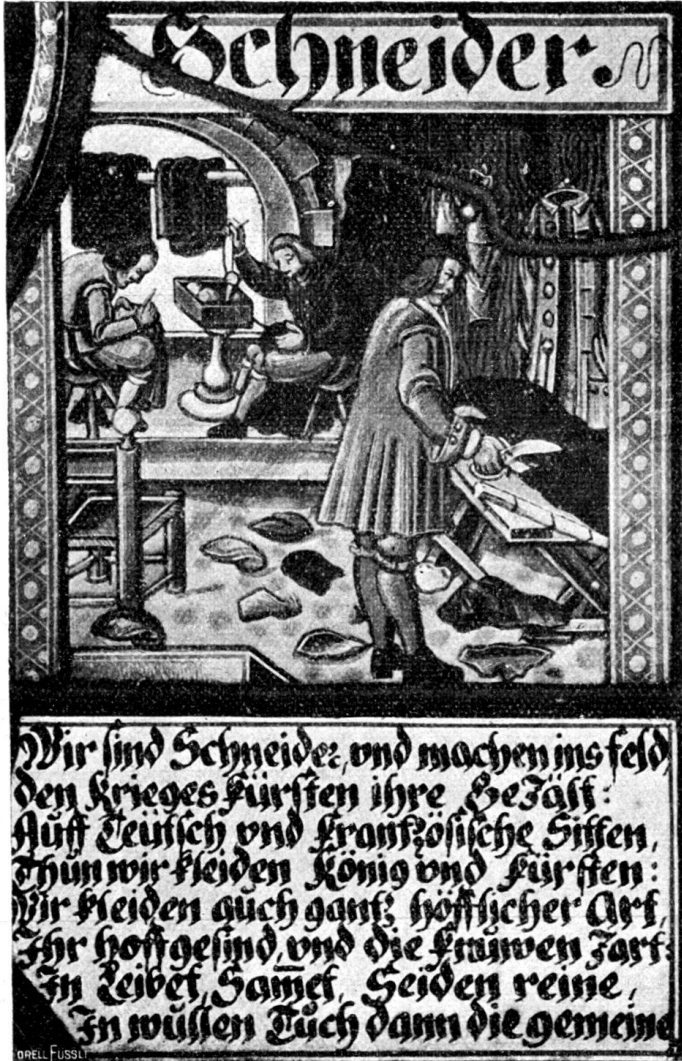 Schneider
Wir sind Schneider, vnd machen ins feld,
den Krieges Fürsten ihre GeZält:
Auff Teütsch vnd Frantzösische Sitten,
Thun wir kleiden König vnd Fürsten:
Wir kleiden auch gantz höfflicher Art,
Ihr hoffgesind, vnd die Frauwen Zart:
In Leibet, Sam̄et, Seiden reine,
In wullen Tuch dann die gemeine
ORELL FÜSSLI